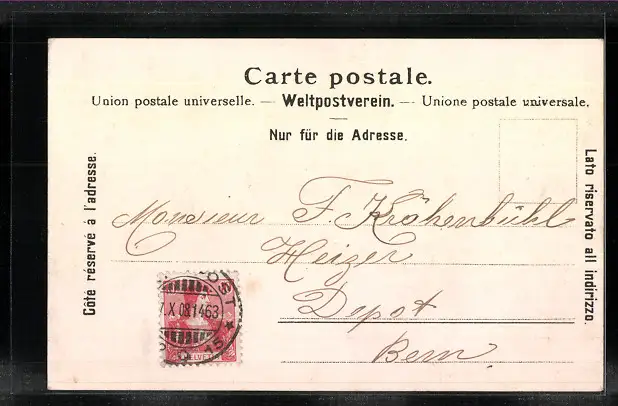 Carte postale.
Union postale universelle. — Weltpostverein. — Unione postale universale.
Nur für die Adresse.
Côté réservé à l'adresse.
Lato riservato all indirizzo.
Monsieur F. Krähenbühl
Heizer
Depot
Bern
POST
X 08 14 63
15
HELVETIA